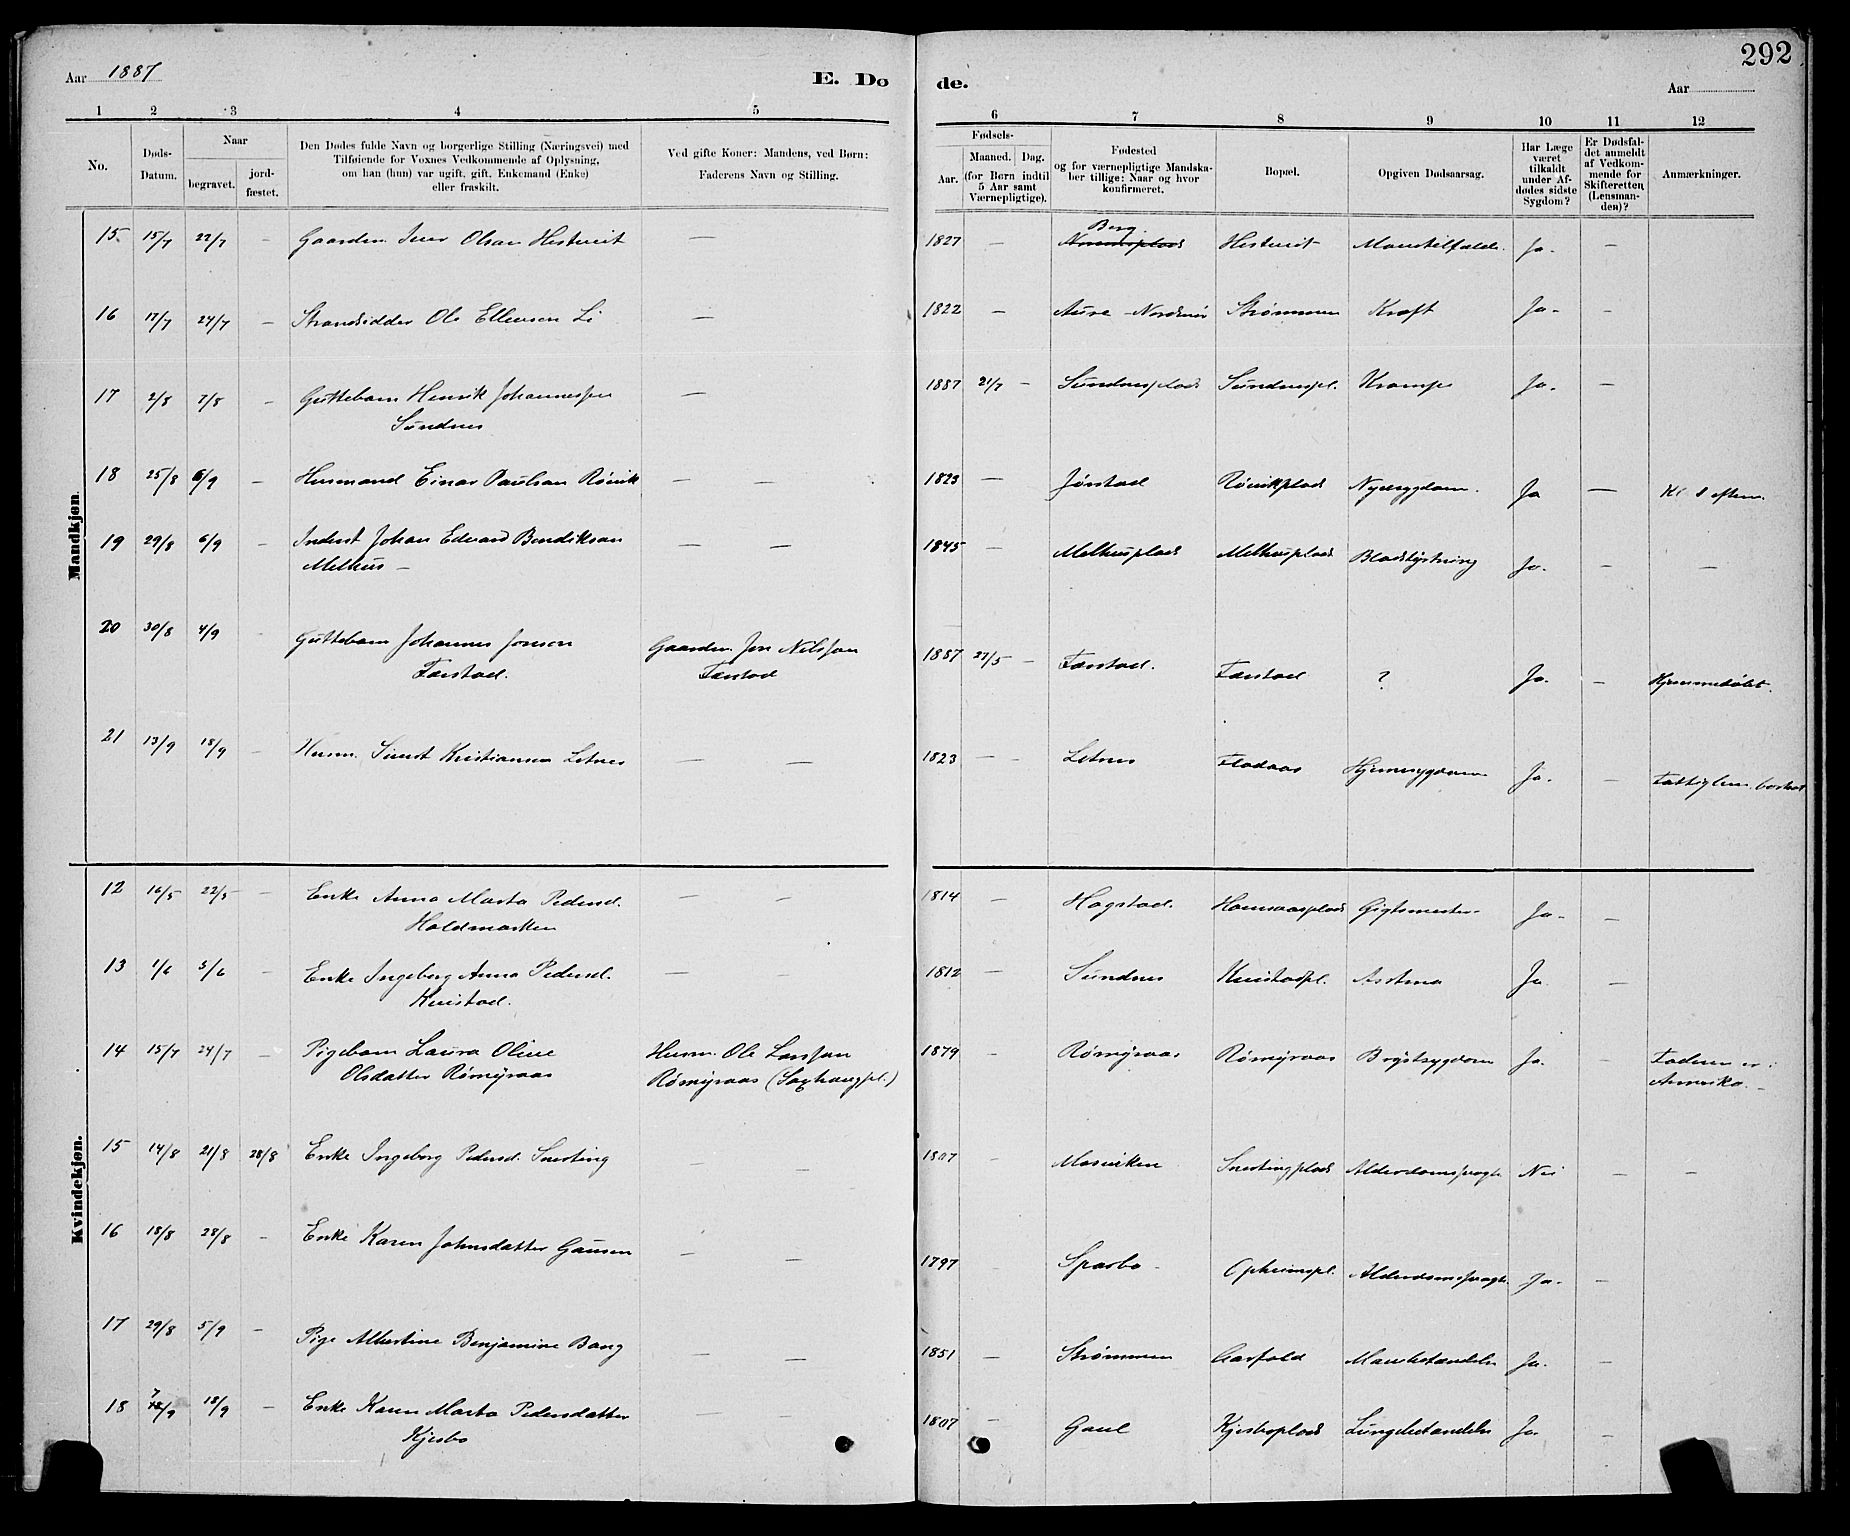 292
Aar 1887
E. Dø
de.
Aar
1 2 3 4 5
6 7 8 9 10 11 12
No.
Døds-Datum.
Naar
begravet.
jord-fæstet.
Den Dødes fulde Navn og borgerlige Stilling (Næringsvei) med
Tilføiende for Voxnes Vedkommende af Oplysning,
om han (hun) var ugift, gift, Enkemand (Enke)
eller fraskilt.
Ved gifte Koner: Mandens, ved Børn:
Faderens Navn og Stilling.
Fødsels-
Aar.
Maaned. Dag.
(for Børn indtil
5 Aar samt
Værnepligtige).
Fødested
og for værnepligtige Mandska-
ber tillige: Naar og hvor
konfirmeret.
Bopæl.
Opgiven Dødsaarsag.
Har Læge
været
tilkaldt
under Af-
dødes sidste
Sygdom?
Er Dødsfal-
det anmeldt
af Vedkom-
mende for
Skifteretten
(Lensman-
den)?
Anmærkninger.
Mandkjøn.
15. 15/7 22/7 — Gaardm. Iver Olsen Hestveit — 1827 — Berg Hestveit Ja. —
16 17/7 24/7 — Strandsidder Ole Ellevsen Li — 1822 — Aure Nordmør Strømmen Kræft Ja. —
17 2/8 7/8 — Guttebarn Henrik Johannessen
Sundnes — 1887 21/7 — Sundnesplads Sundnespl. Krampe Ja. —
18 25/8 6/9 — Husmand Einar Paulsen Røvik — — 1823 — Jørstad Røvikplads Nyresygdom. Ja — Kl. 8 eftm.
19 29/8 6/9 — Inderst Johan Edvard Bendiksen
Melhus — — — 1845 — Melhusplads Melhusplads Blodstyrtning Ja. — —
20 30/8 4/9 Guttebarn Johannes Jonsen
Færstad. Gaardm. Jon Nilssen
Færstad 1887 27/5 — Færstad. Færstad ? Ja. — Hjemmedøbt.
21 13/9 18/9 — Husm. Sivert Kristiansen Letnes — — 1823 — — Letnes Fladaas Hjernesygdom Ja. —
Kvindekjøn.
12 16/5 22/5 — Enke Anna Marta Pedersd.
Holdmarken — — 1814 — Hogstad. Ja. —
13 1/6 5/6 — Enke Ingeborg Anna Pedersd.
Kvistad. — — 1812 — Sundnes Kvistadpl. Astma Ja. —
14 15/7 24/7 — Pigebarn Laura Oline
Olsdatter Rømyraas Husm. Ole Larssen
Rømyraas (Saxhaugpl.) 1879 — Rømyraas Rømyraas Brystsygdom Ja. — Faderen er i
Amerika. —
15 14/8 21/8 28/8 Enke Ingeborg Pedersd. Snerting — — 1807 — Mosviken Snertingplads Nei — —
16 18/8 28/8 — Enke Karen Johnsdatter Gausen — — 1797 — Sparbo Opheimspl. Ja. —
17 29/8 5/9 — Pige Albertine Benjamine Bang — — 1851 — Strømmen Aasfald Mavebetændelse Ja. —
18 7/9 18/9 — Enke Karen Marta Pedersdatter
Kjesbo — — 1807 — Gaul Kjesboplads Lungebetændelse Ja. —